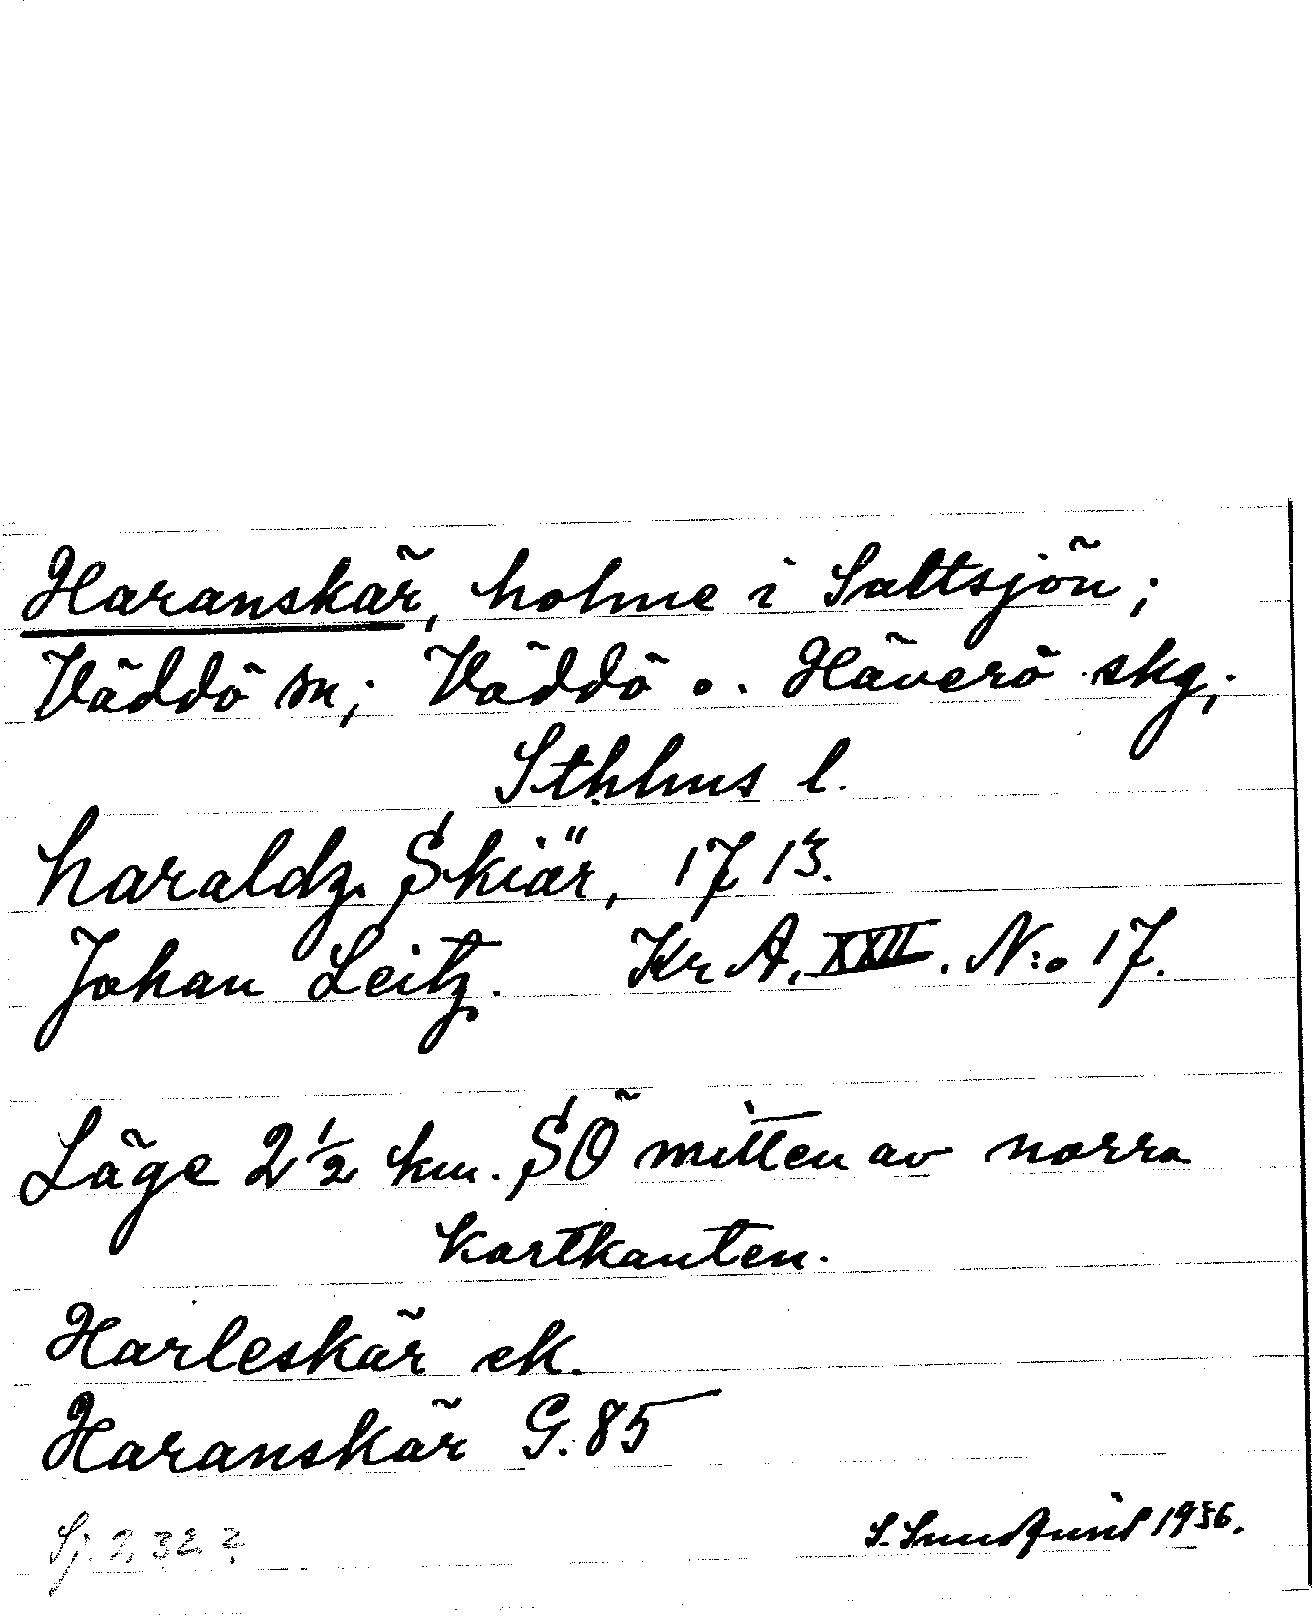 Haranskär, holme i Saltsjön;
Väddö sn; Väddö o. Häverö skg;
Sthlms l.
haraldz. Skiär, 1713.
Johan Leitz. Kr A. XXII. N:o 17.
Läge 2 1/2 km. SÖ mitten av norra
kartkanten.
Harleskär ek.
Haranskär G. 85
Sj. 2, 32 2
S. Sundquist 1936.